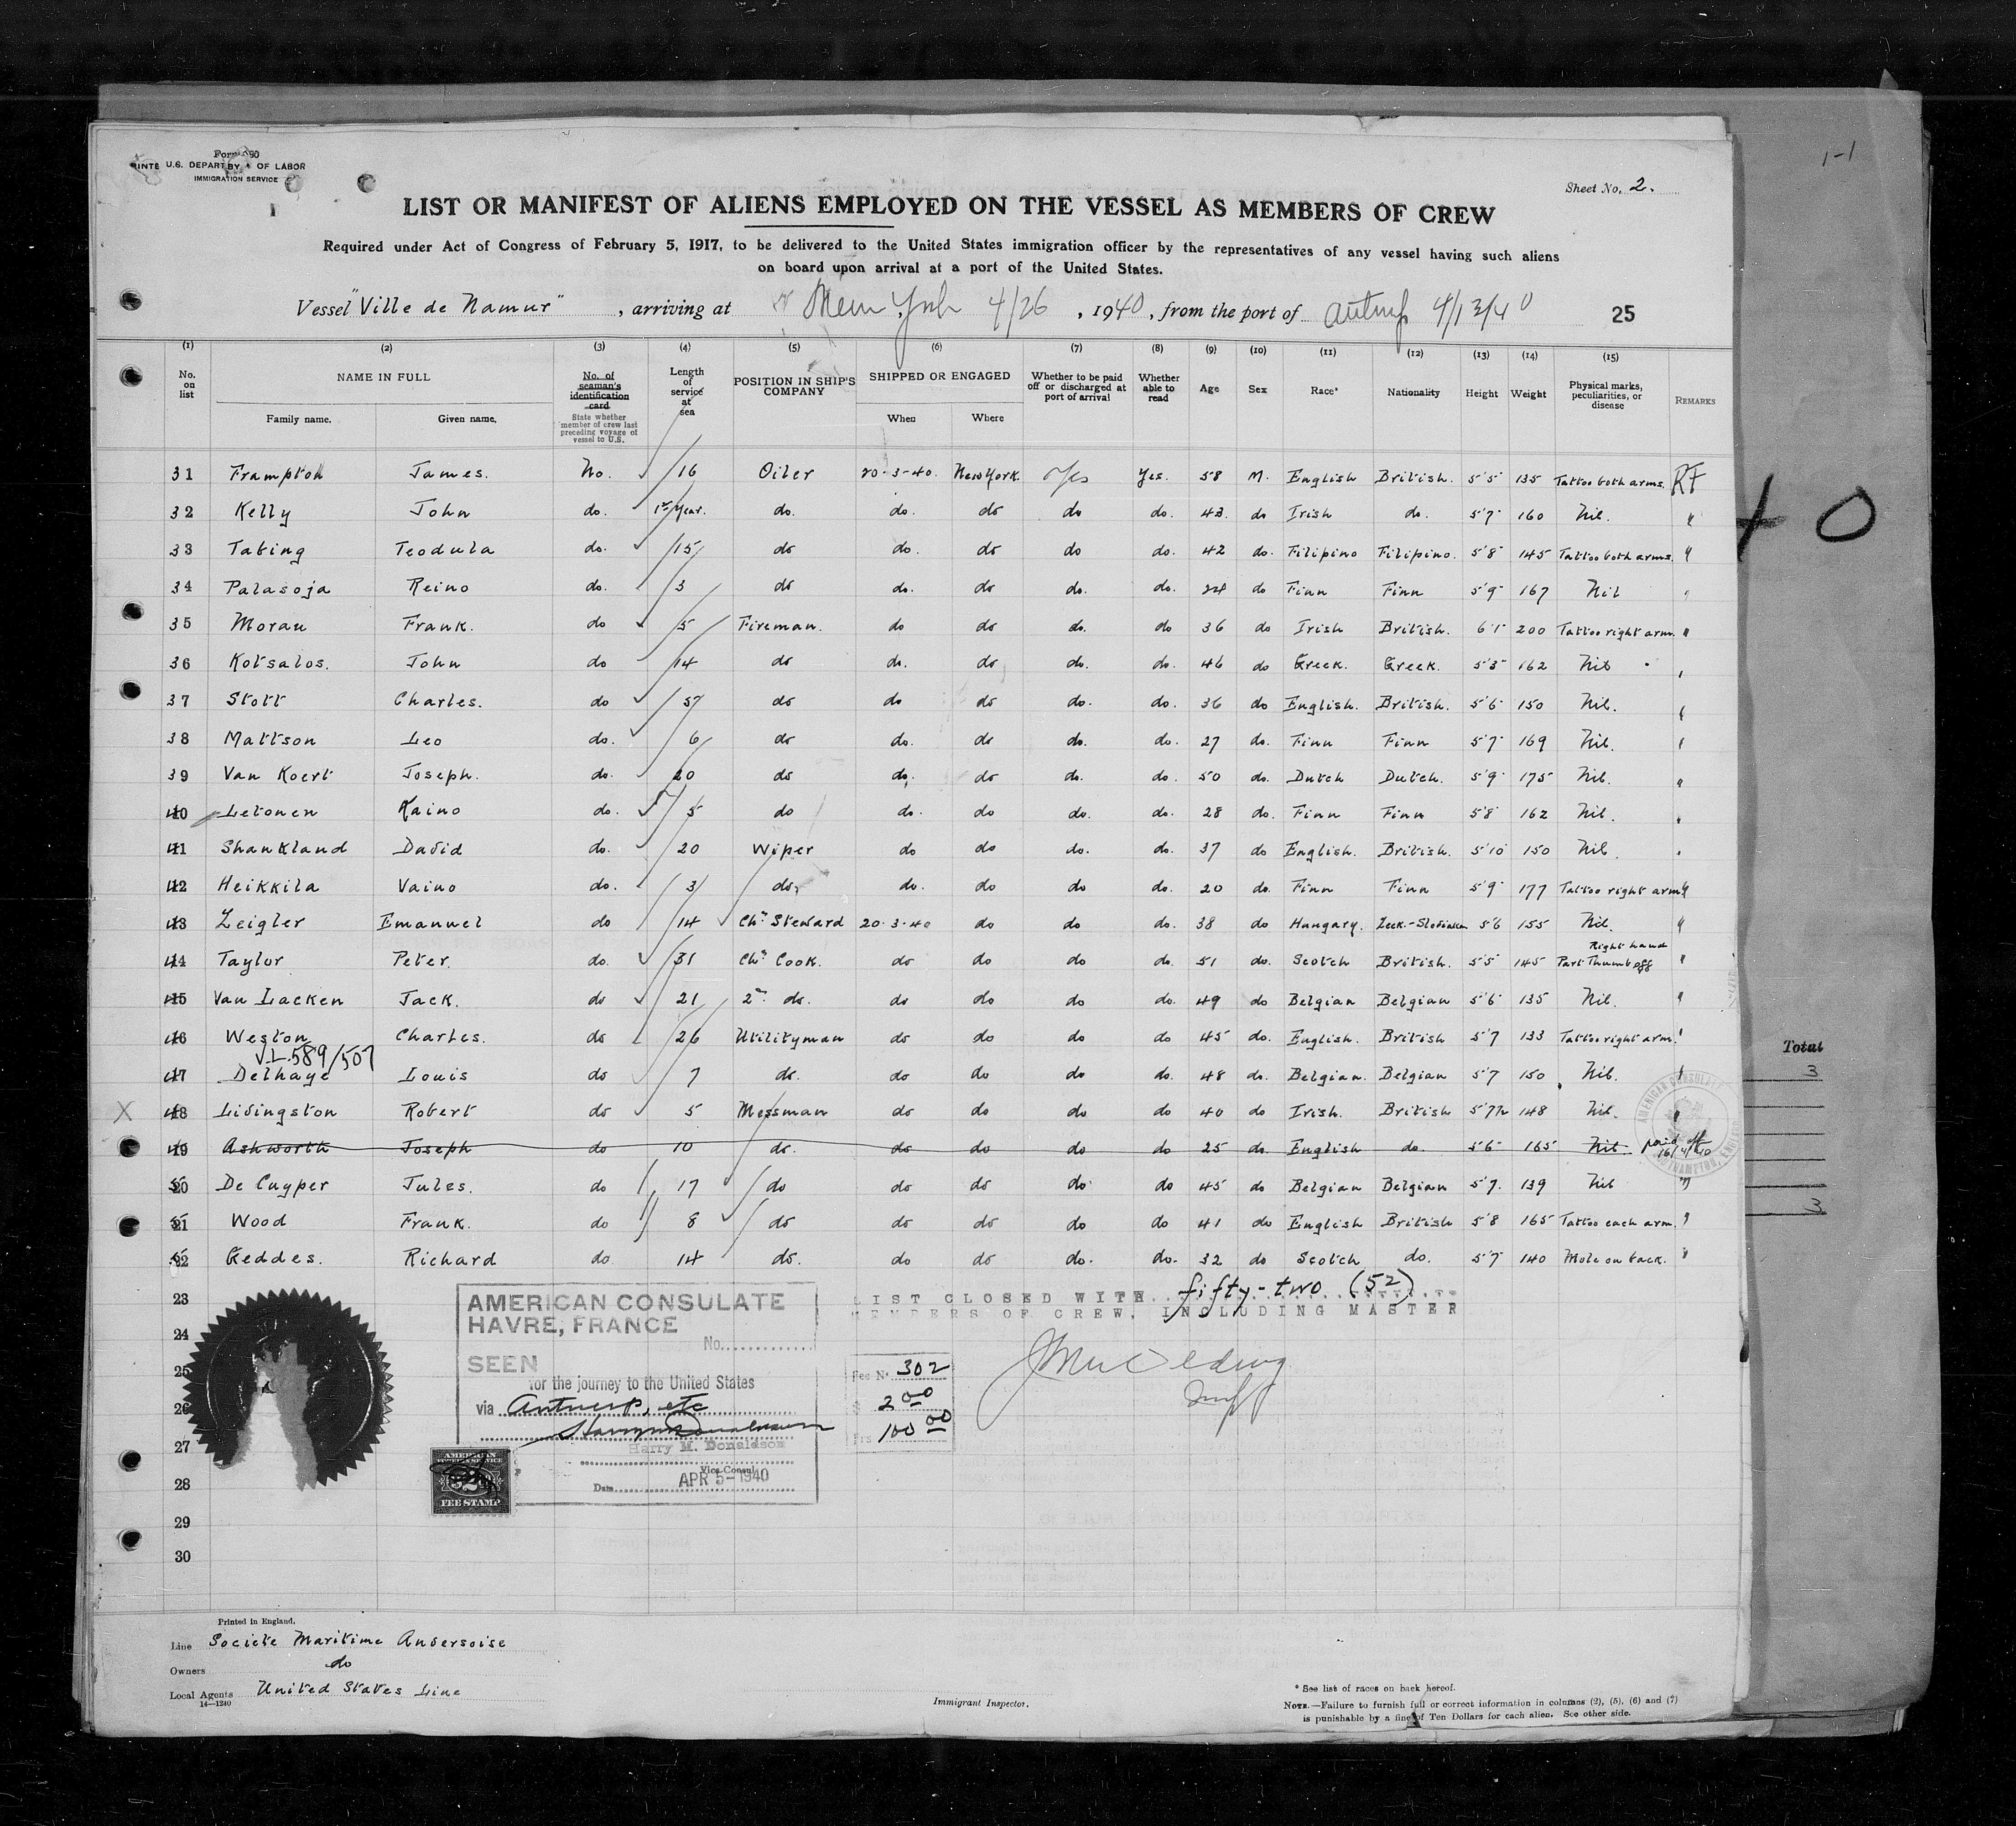 Form 680
U.S. DEPARTMENT OF LABOR
IMMIGRATION SERVICE
1-1
Sheet No. 2.
LIST OR MANIFEST OF ALIENS EMPLOYED ON THE VESSEL AS MEMBERS OF CREW
Required under Act of Congress of February 5, 1917, to be delivered to the United States immigration officer by the representatives of any vessel having such aliens
on board upon arrival at a port of the United States.
Vessel "Ville de Namur", arriving at New York 4/26, 1940, from the port of Antwp 4/13/40 25
(1) (2) (3) (4) (5) (6) (7) (8) (9) (10) (11) (12) (13) (14) (15)
No. on list NAME IN FULL Family name. Given name. No. of seaman's identification card State whether member of crew last preceding voyage of vessel to U.S. Length of service at sea POSITION IN SHIP'S COMPANY SHIPPED OR ENGAGED When Where Whether to be paid off or discharged at port of arrival Whether able to read Age Sex Race* Nationality Height Weight Physical marks, peculiarities, or disease REMARKS
31 Frampton James. No. 16 Oiler 20-3-40. New York. Yes Yes. 58 M. English British. 5'5" 135 Tattoo both arms. RF
32 Kelly John do. 1st Year. do. do. do do do. 43. do Irish do. 5'7" 160 Nil. "
33 Tabing Teodula do. 15 do do. do do do. 42 do. Filipino Filipino. 5'8" 145 Tattoo both arms. "
34 Palasoja Reino do. 3 do do. do do. do. 24 do Finn Finn 5'9" 167 Nil "
35 Moran Frank. do 5 Fireman. do do do. do 36 do Irish British. 6'1" 200 Tattoo right arm. "
36 Kotsalos. John do 14 do do. do do. do. 46 do Greek. Greek. 5'3" 162 Nil "
37 Stott Charles. do do do do do. do. 36 do English. British. 5'6" 150 Nil. "
38 Mattson Leo do. 6 do do. do do. do. 27 do. Finn Finn 5'7" 169 Nil. "
39 Van Koert Joseph. do. 20 do do. do do. do. 50 do. Dutch Dutch. 5'9" 175 Nil. "
40 Letonen Kaino do. 5 do do. do do. do. 28 do. Finn Finn 5'8" 162 Nil. "
41 Shankland David do. 20 Wiper do do do. do. 37 do English. British. 5'10" 150 Nil. "
42 Heikkila Vaino do. 3 do. do. do do do. 20 do. Finn Finn 5'9" 177 Tattoo right arm. "
43 Zeigler Emanuel do 14 Chf Steward 20-3-40 do do do. 38 do Hungary. 5'6 155 Nil. "
44 Taylor Peter. do. 31 Chf Cook. do do do do. 51 do. Scotch British. 5'5" 145 Right hand Part Thumb off "
45 Van Lacken Jack. do 21 2nd do. do do do do. 49 do Belgian Belgian 5'6" 135 Nil. "
46 Weston Charles. do 26 Utilityman do do do do 45 do. English. British 5'7 133 Tattoo right arm. "
V.L. 589/507
47 Delhaye Louis do 7 do. do do do do. 48 do. Belgian. Belgian 5'7 150 Nil.
X 48 Livingston Robert do 5 Messman do do do do 40 do Irish. British 5'7½ 148 Nil.
49 Ashworth Joseph do 10 do. do do do do 25 do. English do. 5'6" 165 Nil. paid off 16/4/40
50 De Cuyper Jules. do 17 do do do do do 45 do Belgian Belgian 5'7. 139 Nil "
51 Wood Frank. do 8 do do do do do 41 do English British 5'8 165 Tattoo each arm. "
52 Geddes. Richard do 14 do. do do do. do. 32 do Scotch do. 5'7" 140 Mole on back. "
23
24
25
26
27
28
29
30
LIST CLOSED WITH fifty-two (52)
MEMBERS OF CREW, INCLUDING MASTER
AMERICAN CONSULATE
HAVRE, FRANCE
No.
SEEN
for the journey to the United States
via Antwerp, etc
Harry M. Donaldson
Vice Consul
Date APR 5-1940
AMERICAN
FEE STAMP
Fee No. 302
$ 2.00
Frs 100.00
AMERICAN CONSULATE
SOUTHAMPTON, ENGLAND
Total
3
3
Printed in England.
Line Societe Maritime Anversoise
Owners do
Local Agents United States Line
14—1240
Immigrant Inspector.
* See list of races on back hereof.
NOTE.—Failure to furnish full or correct information in columns (2), (5), (6) and (7)
is punishable by a fine of Ten Dollars for each alien. See other side.